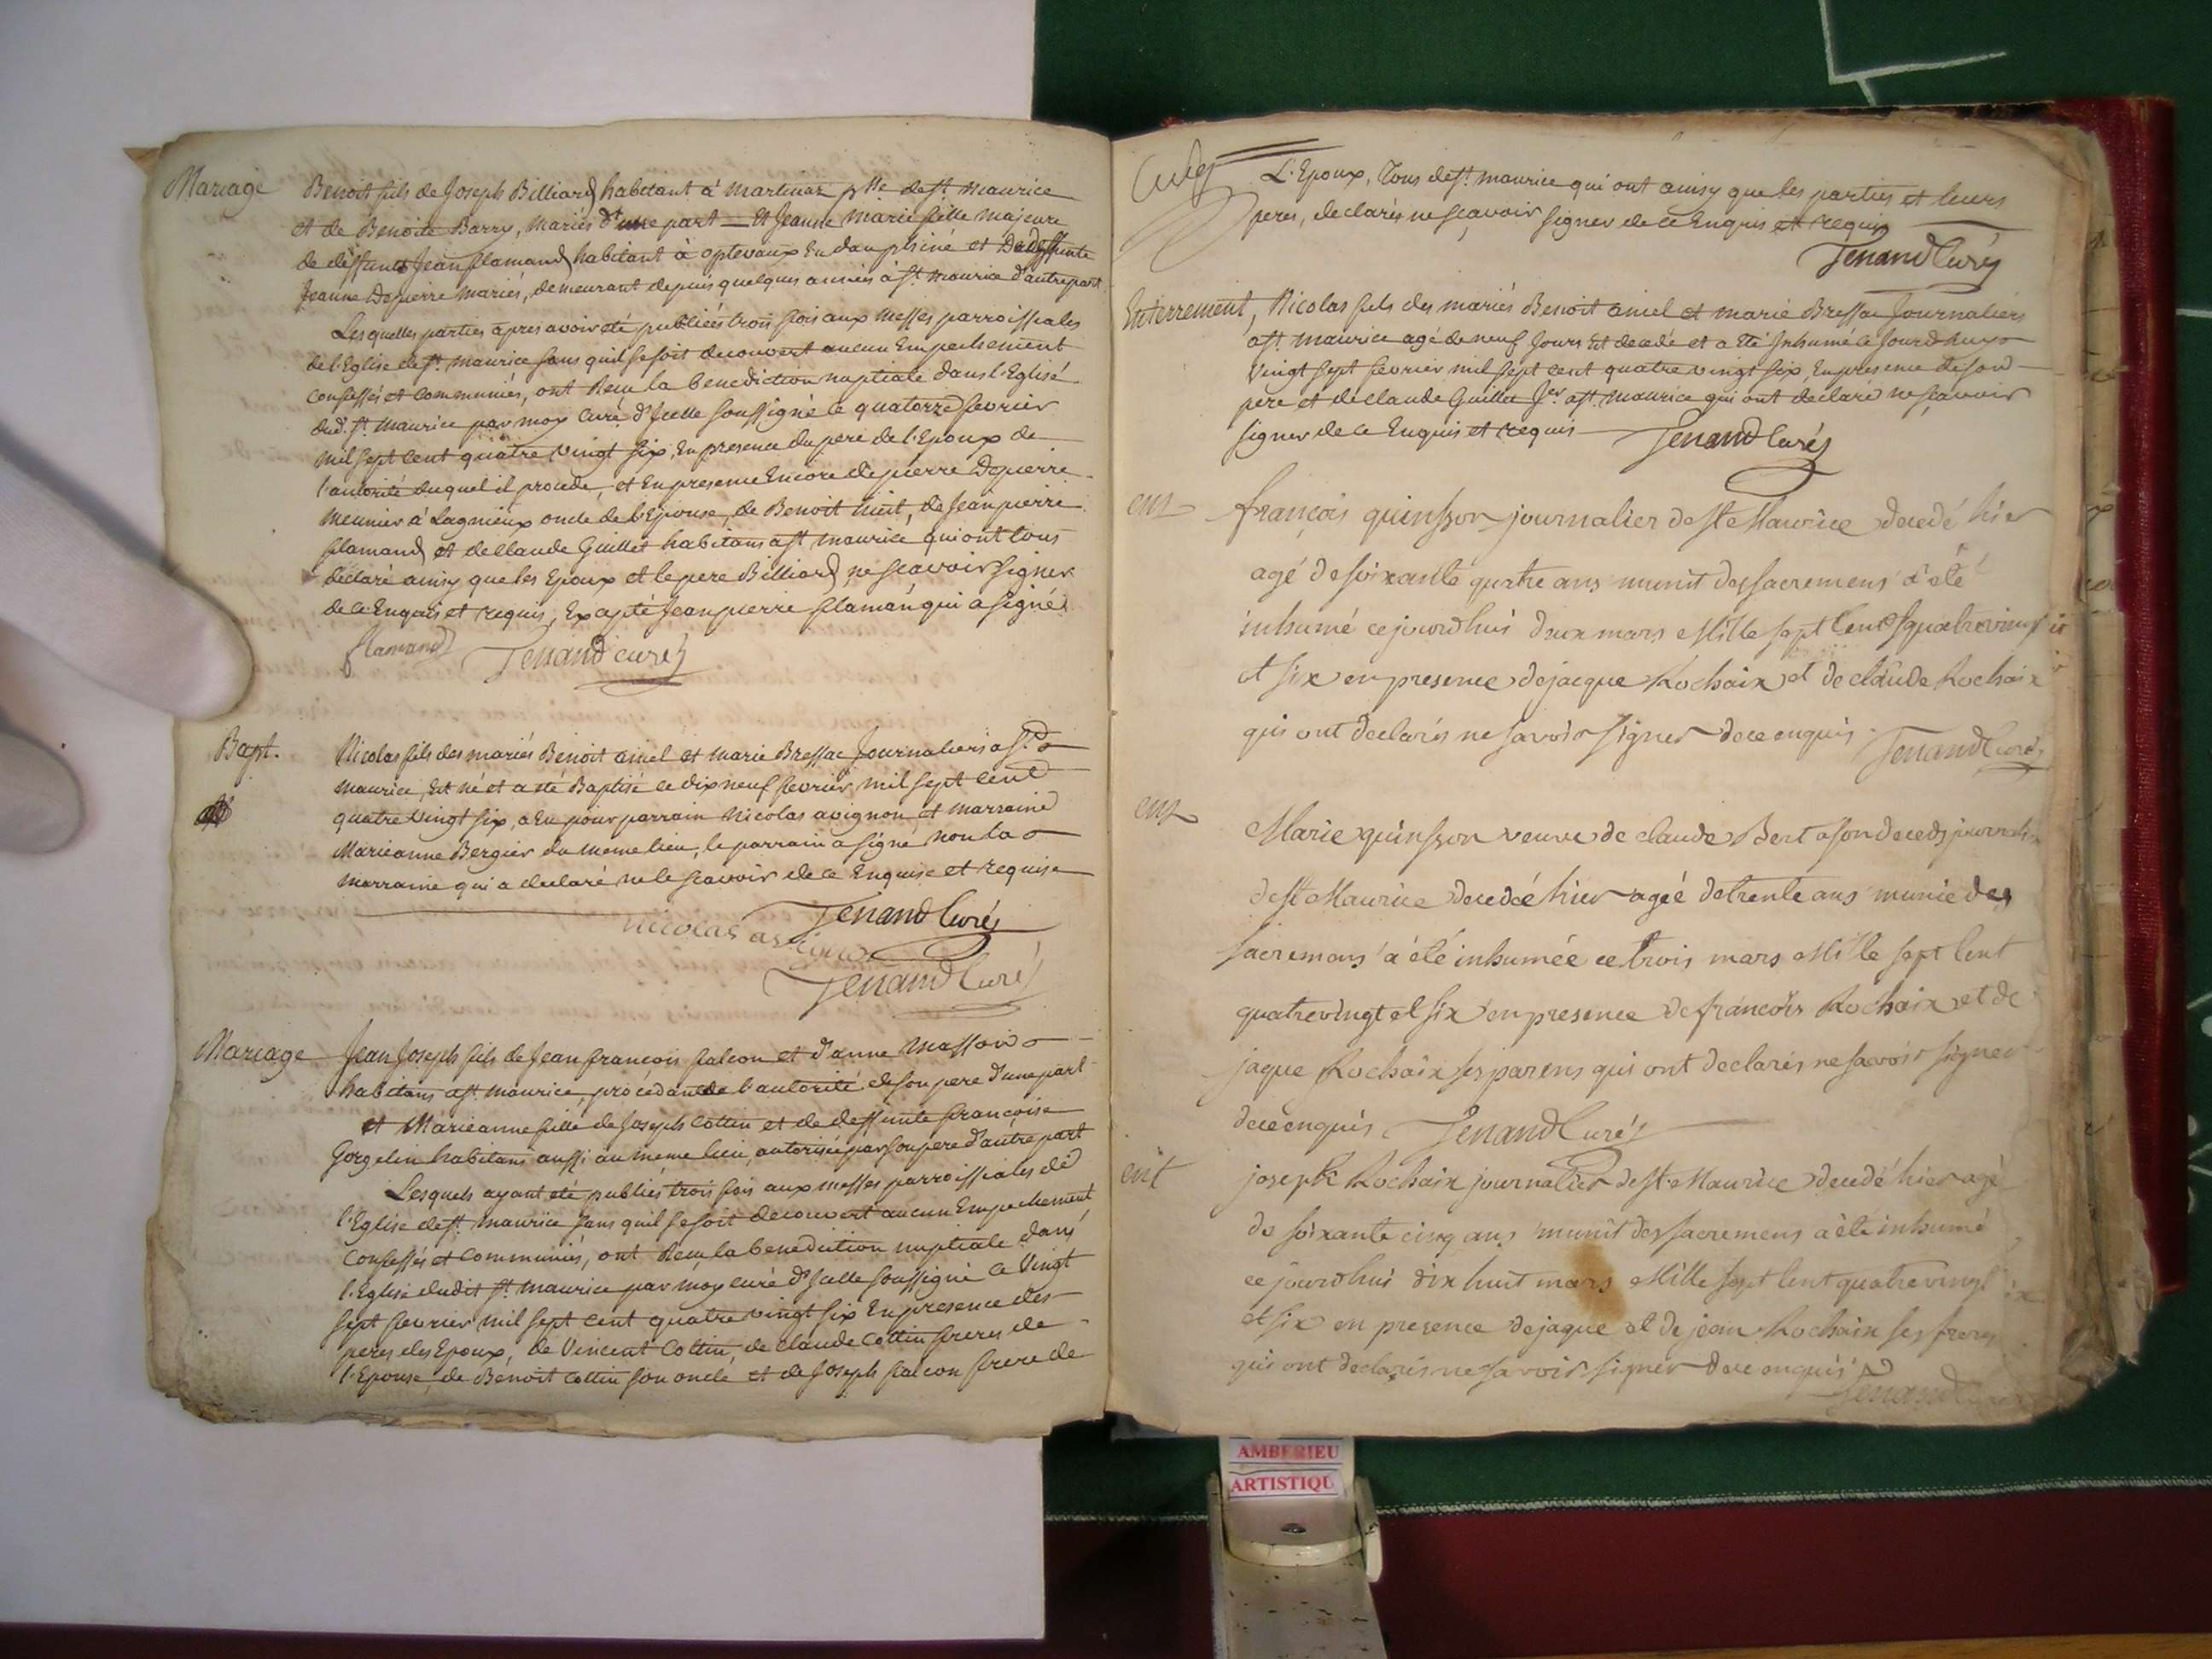 Mariage
Benoit fils de Joseph Billiard habitant à Martinaz psse de st maurice
et de Benoite Barry, mariés d'une part = Et Jeanne Marie fille majeure
de deffunt Jean flamand habitant à optevaux En dauphiné et De deffunte
Jeanne Depierre mariés, demeurant depuis quelques années à st. maurice d'autre part
Lesquelles parties apres avoir eté publiées trois fois aux Messes parroissiales
de l'Eglise de st. maurice sans quil se soit decouvert aucun Empechement
confessés et communiés, ont Reçu la benediction nuptiale dans l'Eglise
dud. st. maurice par moy curé d'Icelle soussigné le quatorze fevrier
mil sept cent quatre vingt six, En presence du pere de l'Epoux de
l'autorité duquel il procede, et En presence Encore de pierre Depierre
meunier à Lagnieux oncle de l'Epouse, de Benoit de Jean pierre
flamand et de Claude Guillet habitans a st maurice qui ont tous
declaré ainsy que les Epoux et le pere Billiard ne scavoir signer
de ce Enquis et requis, Excepté Jean pierre flaman qui a signé
flamand Tenand curé
Bapt.
Nicolas fils des mariés Benoit amel et marie Bressac Journaliers a st.
maurice, Est né et a eté Baptisé le dix neuf fevrier mil sept cent
quatre vingt six, a Eu pour parrain Nicolas avignon, et marraine
Marieanne Bergier du meme lieu, le parrain a signé non la
marraine qui a declaré ne le scavoir de ce Enquise et requise
Tenand Curé
nicolas avignon
Tenand Curé
Mariage
Jean Joseph fils de Jean francois falcon et d'anne Masson
habitans a st. maurice, procédant de l'autorité de son pere d'une part
et Marieanne fille de Joseph Cottin et de deffunte françoise
Gorgelin habitans aussi au même lieu, autorisée par son pere d'autre part
Lesquels ayant eté publiés trois fois aux messes parroissiales de
l'Eglise de st. maurice sans quil se soit decouvert aucun Empechement
Confessés et Communiés, ont Reçu la benediction nuptiale dans
l'Eglise dudit st. maurice par moy curé d'Icelle soussigné le Vingt
sept fevrier mil sept cent quatre vingt six En presence des
peres des Epoux, de Vincent Cottin, de claude Cottin freres de
l'Epouse, de Benoit Cottin son oncle et de Joseph falcon frere de
L'Epoux, Tous de st. maurice qui ont ainsy que les parties et leurs
peres, declarés ne scavoir signer de ce Enquis et requis
Tenand Curé
Enterrement, Nicolas fils des mariés Benoit amel et marie Bressac Journaliers
a st. maurice agé de neuf Jours Est decedé et a eté Inhumé ce Jourdhuy
vingt sept fevrier mil sept cent quatre vingt six, En presence de son
pere et de Claude Guillet Jer a st. Maurice qui ont declaré ne scavoir
signer de ce Enquis et requis Tenand Curé
ent
françois quinsson journalier de st Maurice decedé hier
agé de soixante quatre ans munit des sacremens a été
inhumé cejourdhui deux mars Mille sept Cent quatrevingt
et six en presence de jacque Rochaix et de claude Rochaix
qui ont declarés ne savoir signer de ce enquis Tenand Curé
ent
Marie quinsson veuve de claude Bert a son deceds journalier
de st Maurice decedée hier agée de trente ans munie des
sacremens a été inhumée ce trois mars Mille sept Cent
quatrevingt et six en presence de francois Rochaix et de
jaque Rochaix ses parens qui ont declarés ne savoir signer
de ce enquis Tenand Curé
ent
joseph Rochaix journalier de st. Maurice decedé hier agé
de soixante cinq ans munit des sacremens a été inhumé
ce jourdhui dix huit mars Mille sept Cent quatre vingt
et six en presence de jaque et de jean Rochaix ses freres
qui ont declarés ne savoir signer de ce enquis
Tenand Curé
AMBERIEU
ARTISTIQU